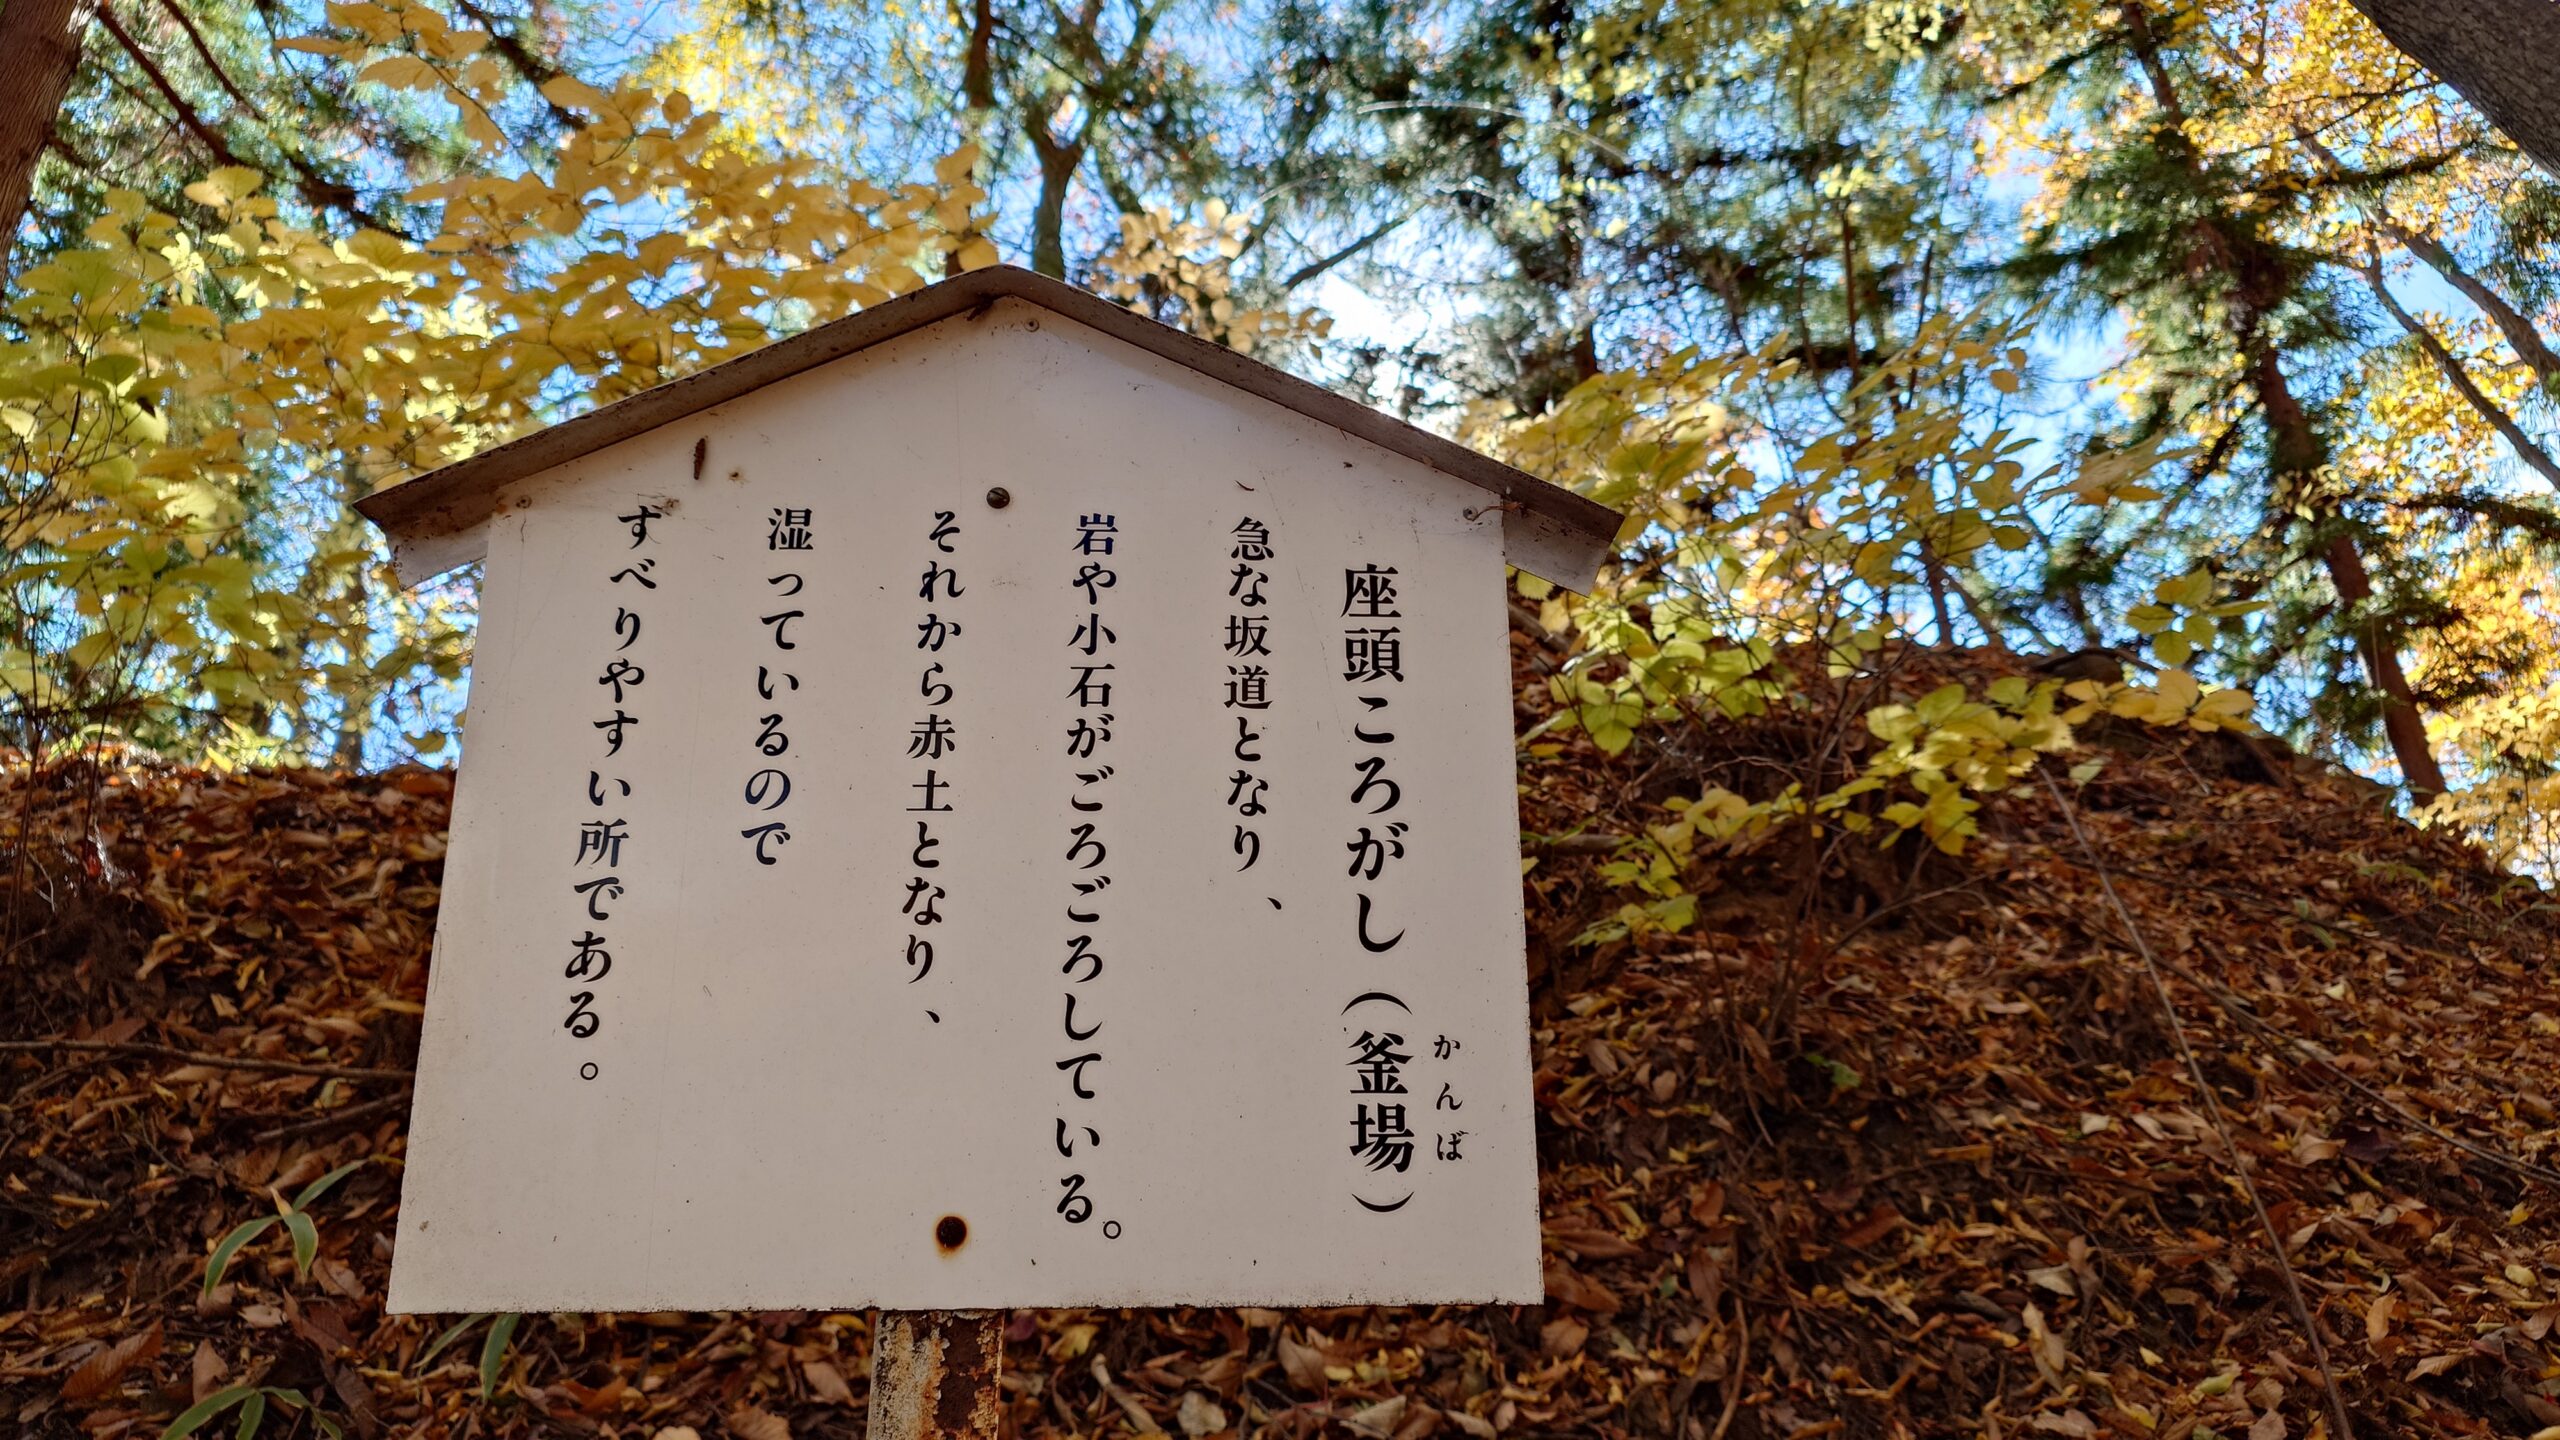 座頭ころがし(釜場)
かんば
急な坂道となり、
岩や小石がごろごろしている。
それから赤土となり、
湿っているので
すべりやすい所である。